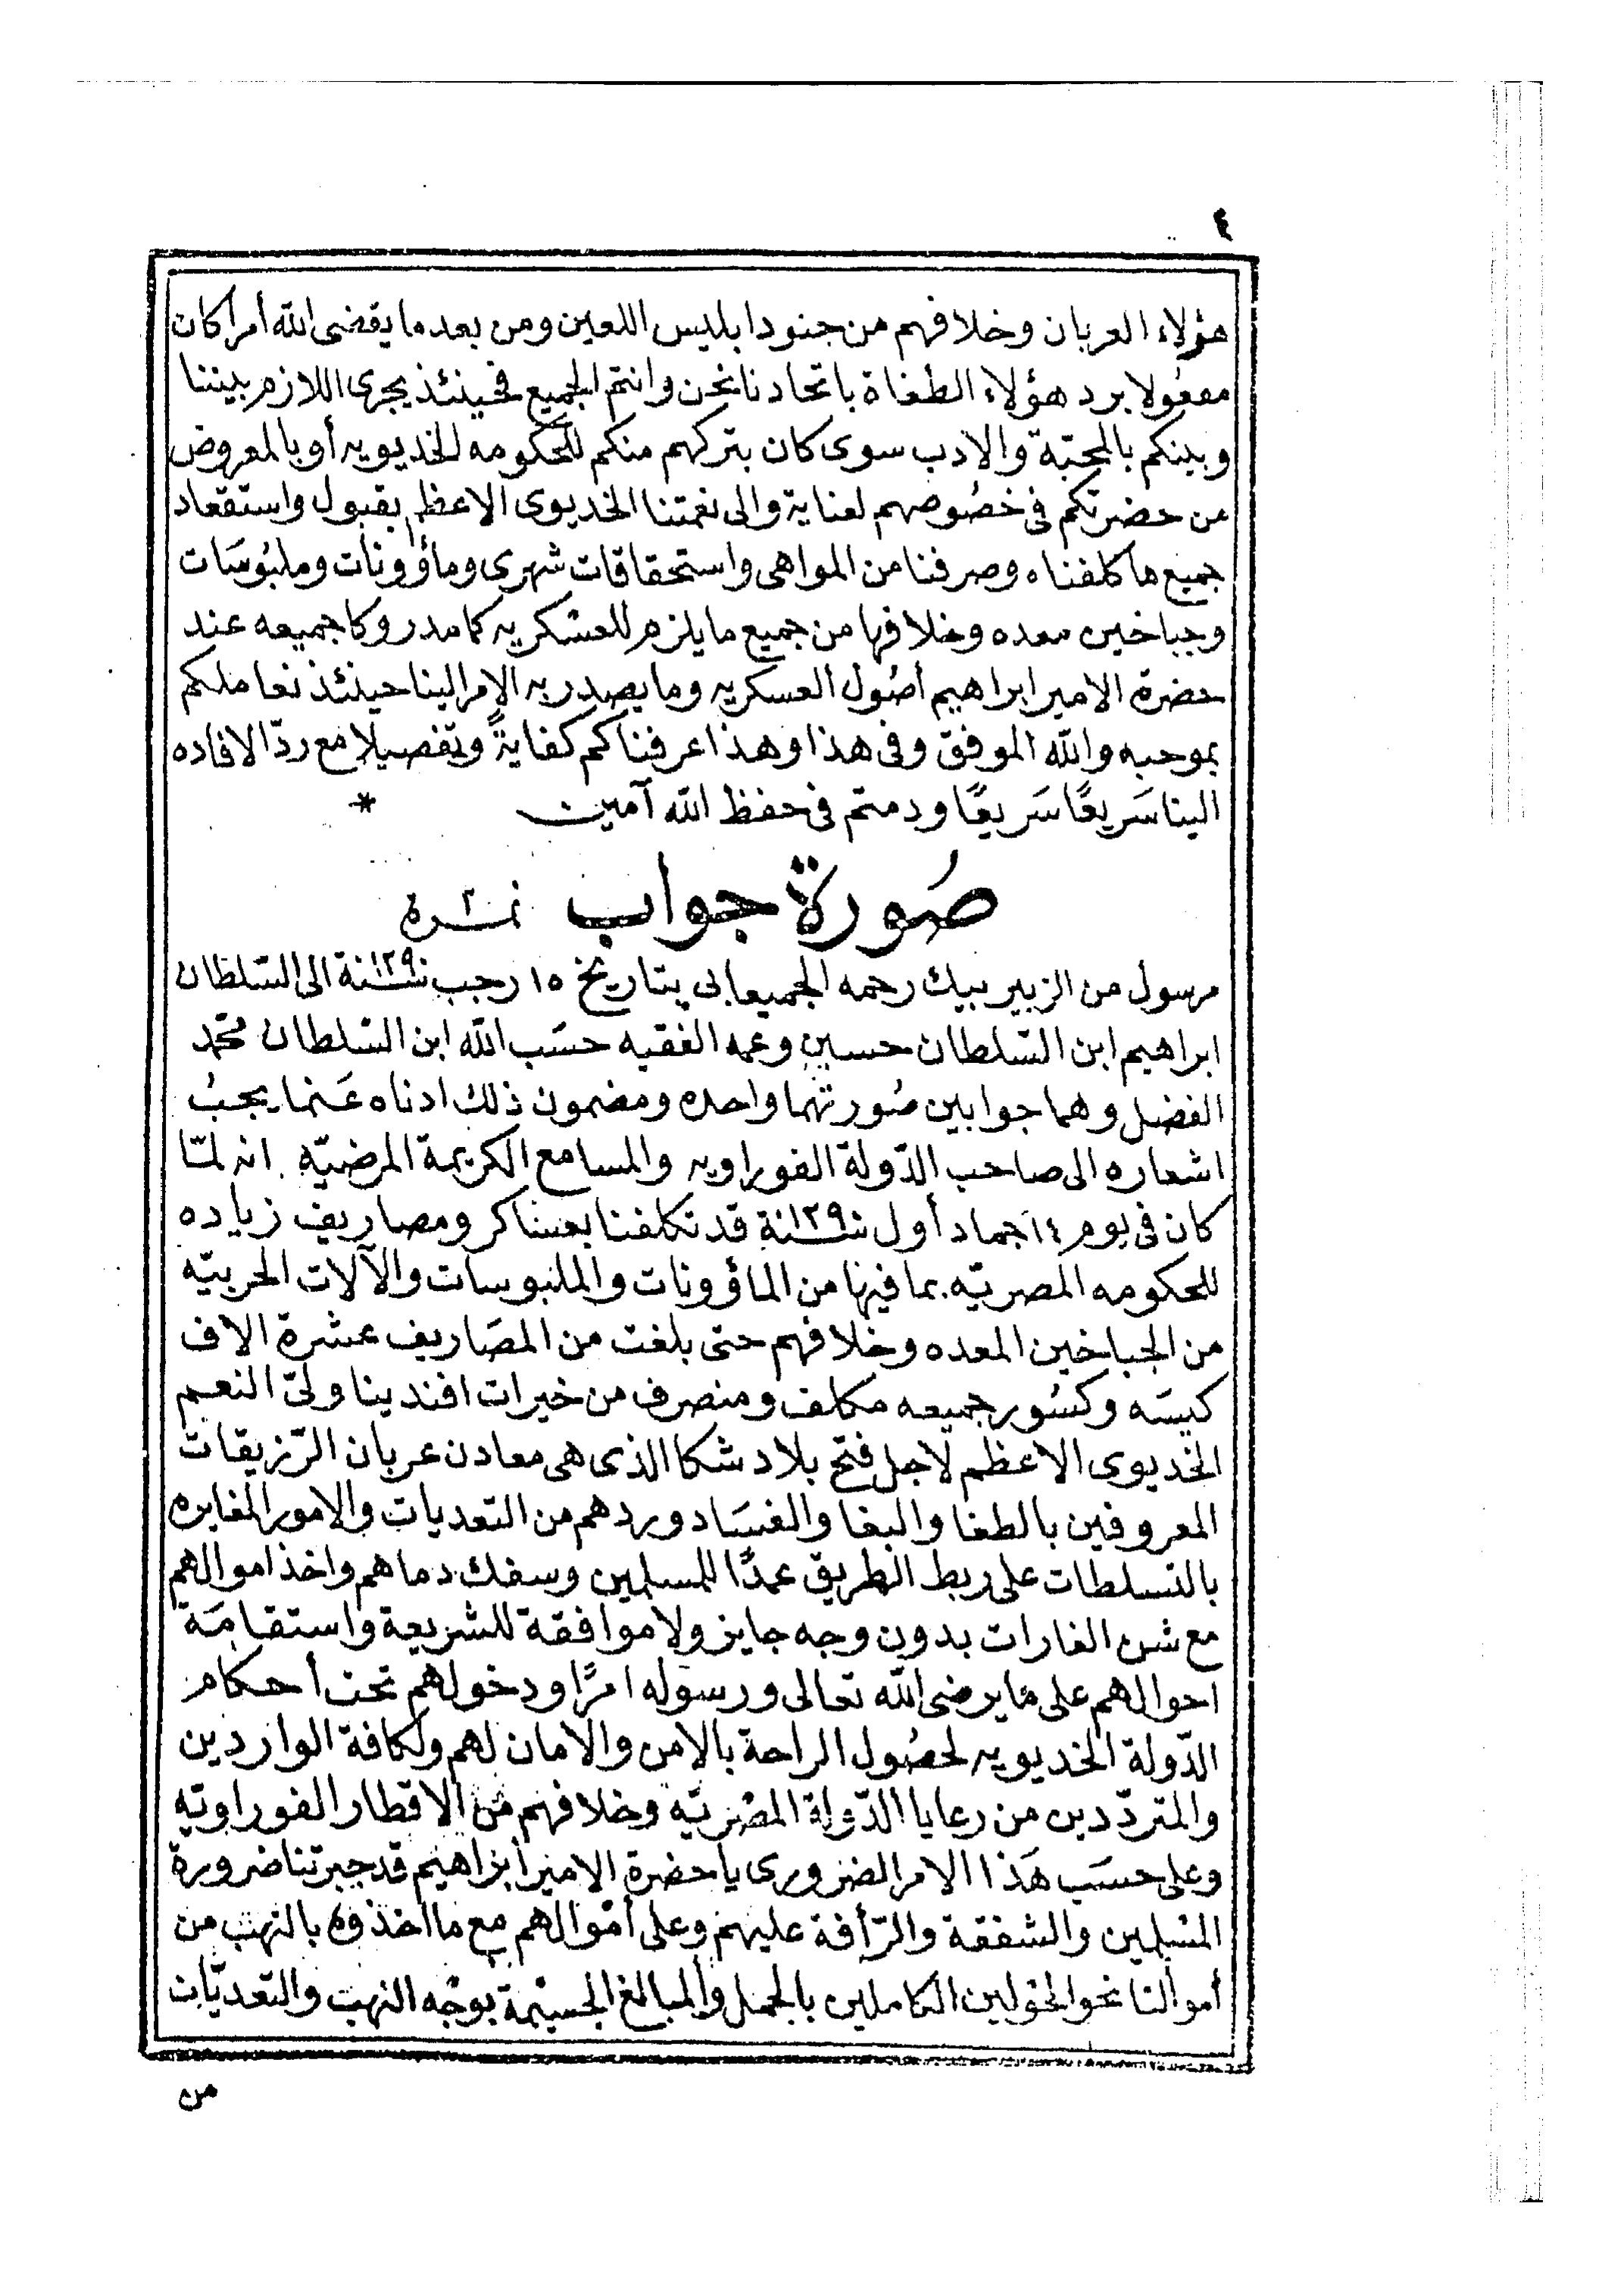 ٤
هؤلاء العربان وخلافهم من جنود ابليس اللعين ومن بعد ما يقضى الله أمرا كان
مفعولا برد هؤلاء الطغاة باتحادنا نحن وانتم الجميع فحينئذ يجرى اللازم بيننا
وبينكم بالمحبّة والادب سوى كان بتركهم منكم للحكومه الخديويه أو بالمعروض
من حضرتكم فى خصُوصهم لعناية والى نعمتنا الخديوى الاعظم بقبول واستقعاد
جميع ما كلفناه وصرفنا من المواهى واستحقاقات شهرى ومأوونات وملبُوسَات
وجباخين معده وخلافها من جميع ما يلزم للعسكريه كما مدروكا جميعه عند
حضرة الامير ابراهيم أصُول العسكريه وما يصدر به الامر الينا حينئذ نعاملكم
بموجبه والله الموفق وفى هذا وهذا عرفناكم كفايةً وتفصيلا مع ردّ الافاده
الينا سَريعًا سَريعًا ودمتم فى حفظ الله آمين *
صُورة جواب نمـ٢ـرة
مرسول من الزبير بيك رحمه الجميعابى بتاريخ ١٥ رجب سنة ١٢٩٠ الى السّلطان
ابراهيم ابن السّلطان حسين وعمه الفقيه حسَب الله ابن السّلطان محمّد
الفضل وهما جوابين صُورتهما واحده ومضمون ذلك ادناه عَنما يجبُ
اشعاره الى صاحب الدّولة الفوراويه والمسامع الكريمة المرضيّه انه لمّا
كان فى يوم ١٤ جماد أول سنة ١٢٩٠ قد تكلفنا بعساكر ومصاريف زياده
للحكومه المصريّه بما فيها من المأوونات والملبوسات والآلات الحربيّه
من الجباخين المعده وخلافهم حتى بلغت من المصَاريف عشرة الاف
كيسَه وكسُور جميعه مكلف ومنصرف من خيرات افندينا ولىّ النعم
الخديوى الاعظم لاجل فتح بلاد شكا الذى هى معادن عربان الرّزيقات
المعروفين بالطغا والبغا والفسَاد وردهم من التعديات والامور المغايره
بالتسلطات على ربط الطريق عمدًا للمسلمين وسفك دماهم واخذ اموالهم
مع شن الغارات بدون وجه جايز ولا موافقة للشريعة واستقامَة
احوالهم على ما يرضى الله تعالى ورسوله امرًا ودخولهم تحت أحكام
الدّولة الخديويه لحصُول الراحة بالامن والامان لهم ولكافة الواردين
والمتردّدين من رعايا الدّولة المصْريّه وخلافهم من الاقطار الفوراويّه
وعلى حسَب هَذا الامر الضرورى يا حضرة الامير ابراهيم قد جبرتنا ضرورة
المسْلمين والشفقة والرّأفة عليهم وعلى أمْوالهم مع ما اخذوه بالنهب من
أموالنا نحو الخولين الكاملين بالجمل والمبالغ الجسيمة بوجْه النهب والتعديّات
من